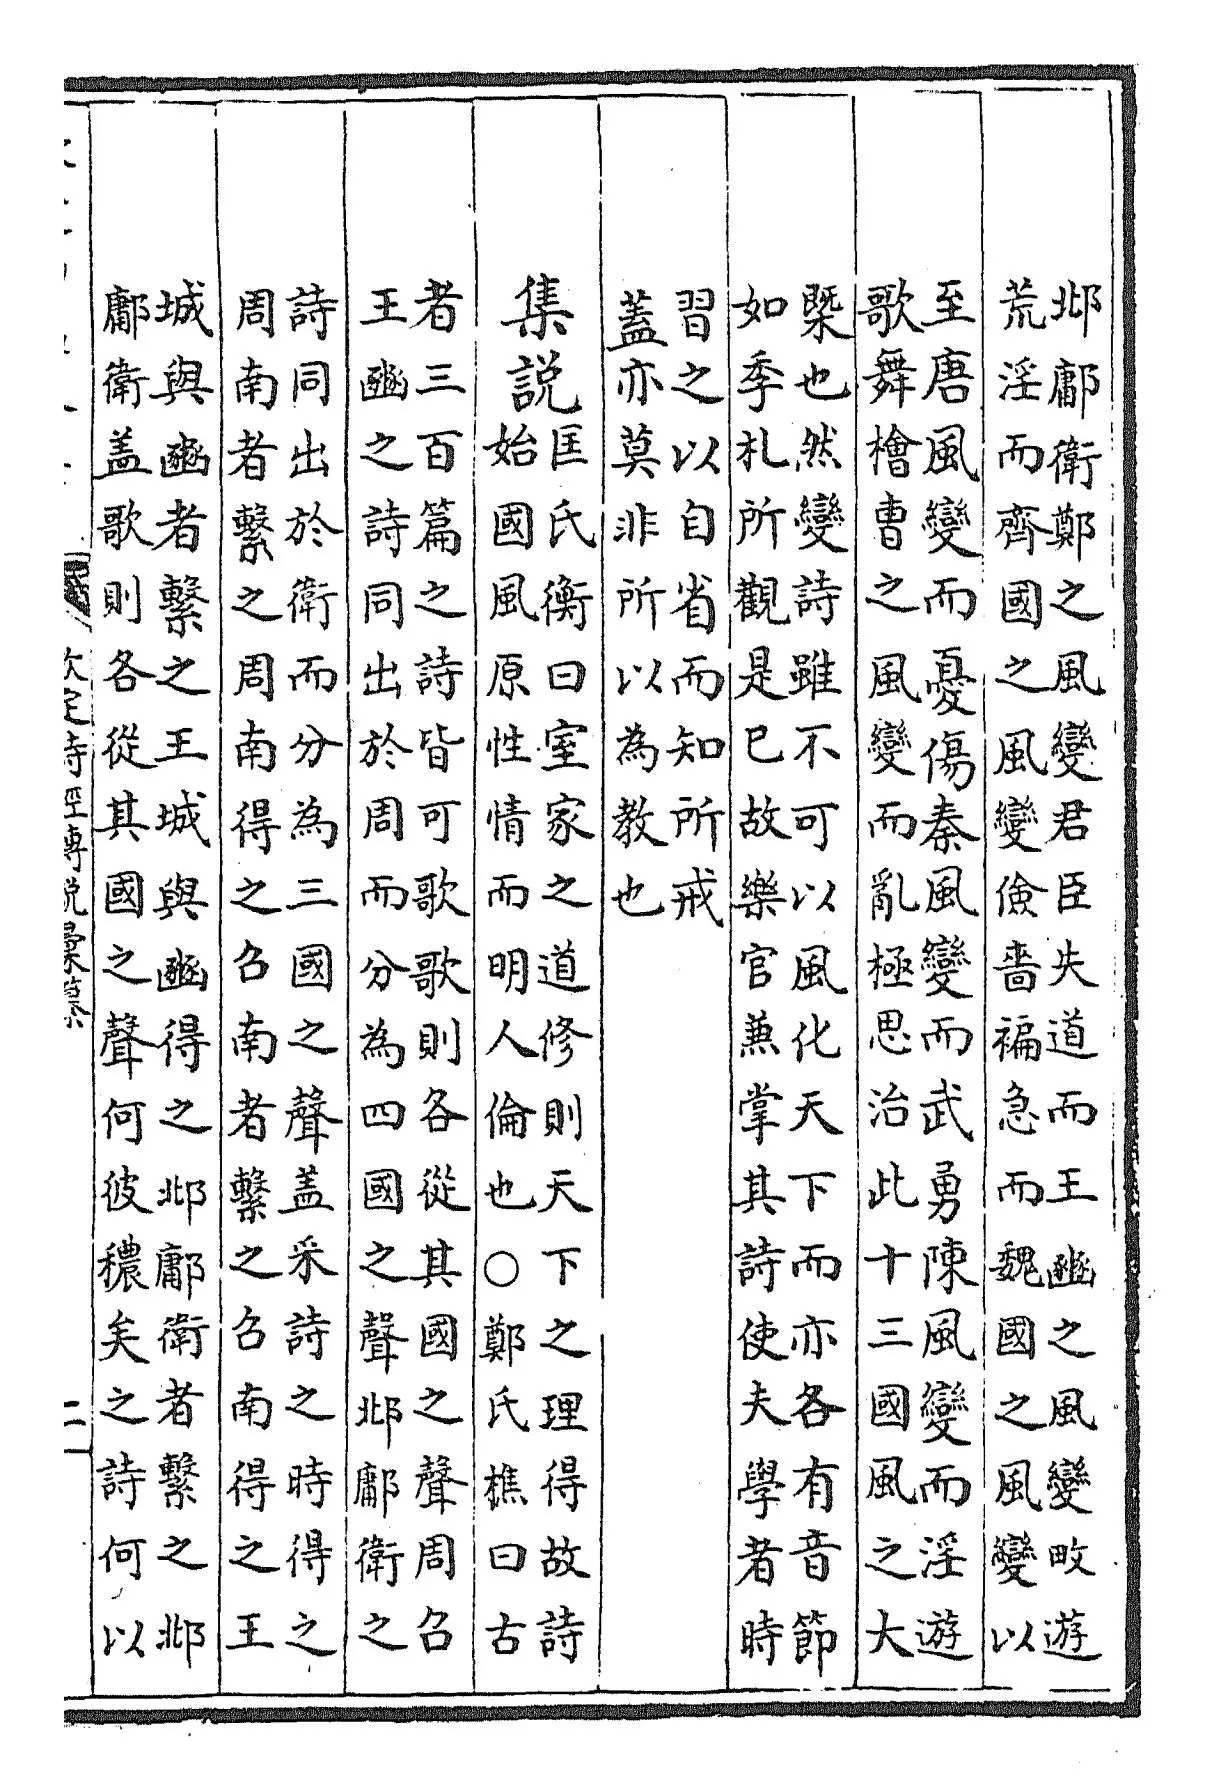 邶鄘衛鄭之風變君臣失道而王豳之風變畋遊
荒淫而齊國之風變儉嗇褊急而魏國之風變以
至唐風變而憂傷秦風變而武勇陳風變而淫遊
歌舞檜曹之風變而亂極思治此十三國風之大
槩也然變詩雖不可以風化天下而亦各有音節
如季札所觀是已故樂官兼掌其詩使夫學者時
習之以自省而知所戒
蓋亦莫非所以為教也
集説
匡氏衡曰室家之道修則天下之理得故詩
始國風原性情而明人倫也○鄭氏樵曰古
者三百篇之詩皆可歌歌則各從其國之聲周召
王豳之詩同出於周而分為四國之聲邶鄘衛之
詩同出於衛而分為三國之聲盖采詩之時得之
周南者繫之周南得之召南者繫之召南得之王
城與豳者繫之王城與豳得之邶鄘衛者繫之邶
鄘衛盖歌則各從其國之聲何彼穠矣之詩何以
欽定詩經傳説彚纂
二